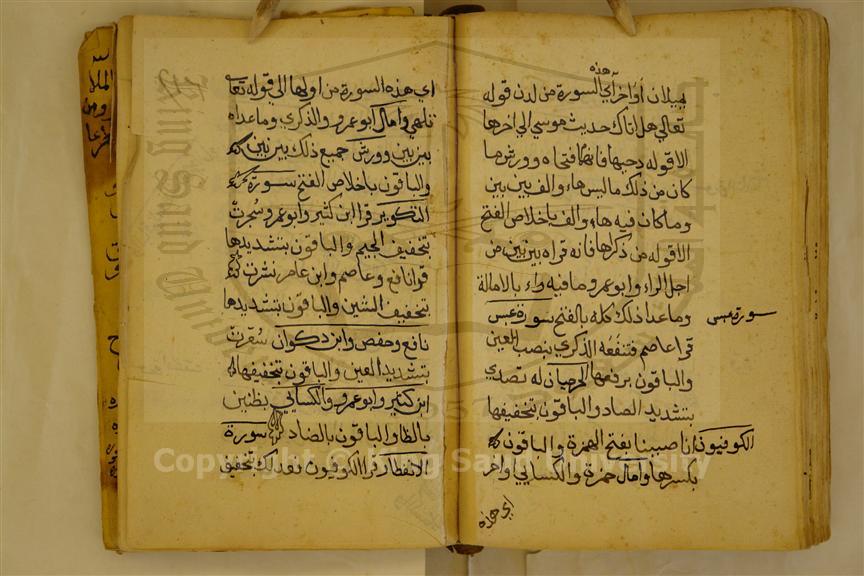 هذه
يميلان أواخر آي السورة من لدن قوله
تعالي هل اتاك حديث موسي الي اخرها
الا قوله دحيها فان حمزة فتحاه وورش ما
كان من ذلك ما ليس هاء والف بين بين
وما كان فيه هاء والف باخلاص الفتح
الا قوله من ذكرها فانه قراه بين بين من
اجل الراء وابو عمرو ما فيه راء بالامالة
وما عدا ذلك كله بالفتح سورة عبس
سورة عبس
قرا عاصم فتنفعه الذكري بنصب العين
والباقون برفعها الحرميان له تصدي
بتشديد الصاد والباقون بتخفيفها
الكوفيون انا صببنا بفتح الهمزة والباقون
بكسرها وامال حمزة والكسائي واخر
اي هذه
اي هذه السورة من اولها الي قوله تعا
تلهي وامال ابو عمرو والذكري وما عداه
بين بين وورش جميع ذلك بين بين
والباقون باخلاص الفتح سورة
التكوير قرا ابن كثير وابو عمرو سجرت
بتخفيف الجيم والباقون بتشديدها
قرا نافع وعاصم وابن عامر نشرت
بتخفيف الشين والباقون بتشديدها
نافع وحفص وابن ذكوان سعرت
بتشديد العين والباقون بتخفيفها
ابن كثير وابو عمرو والكسائي بظنين
بالظا والباقون بالضاد سورة
الانفطار قرا الكوفيون فعدلك بتخفيف
Copyright © King Saud University